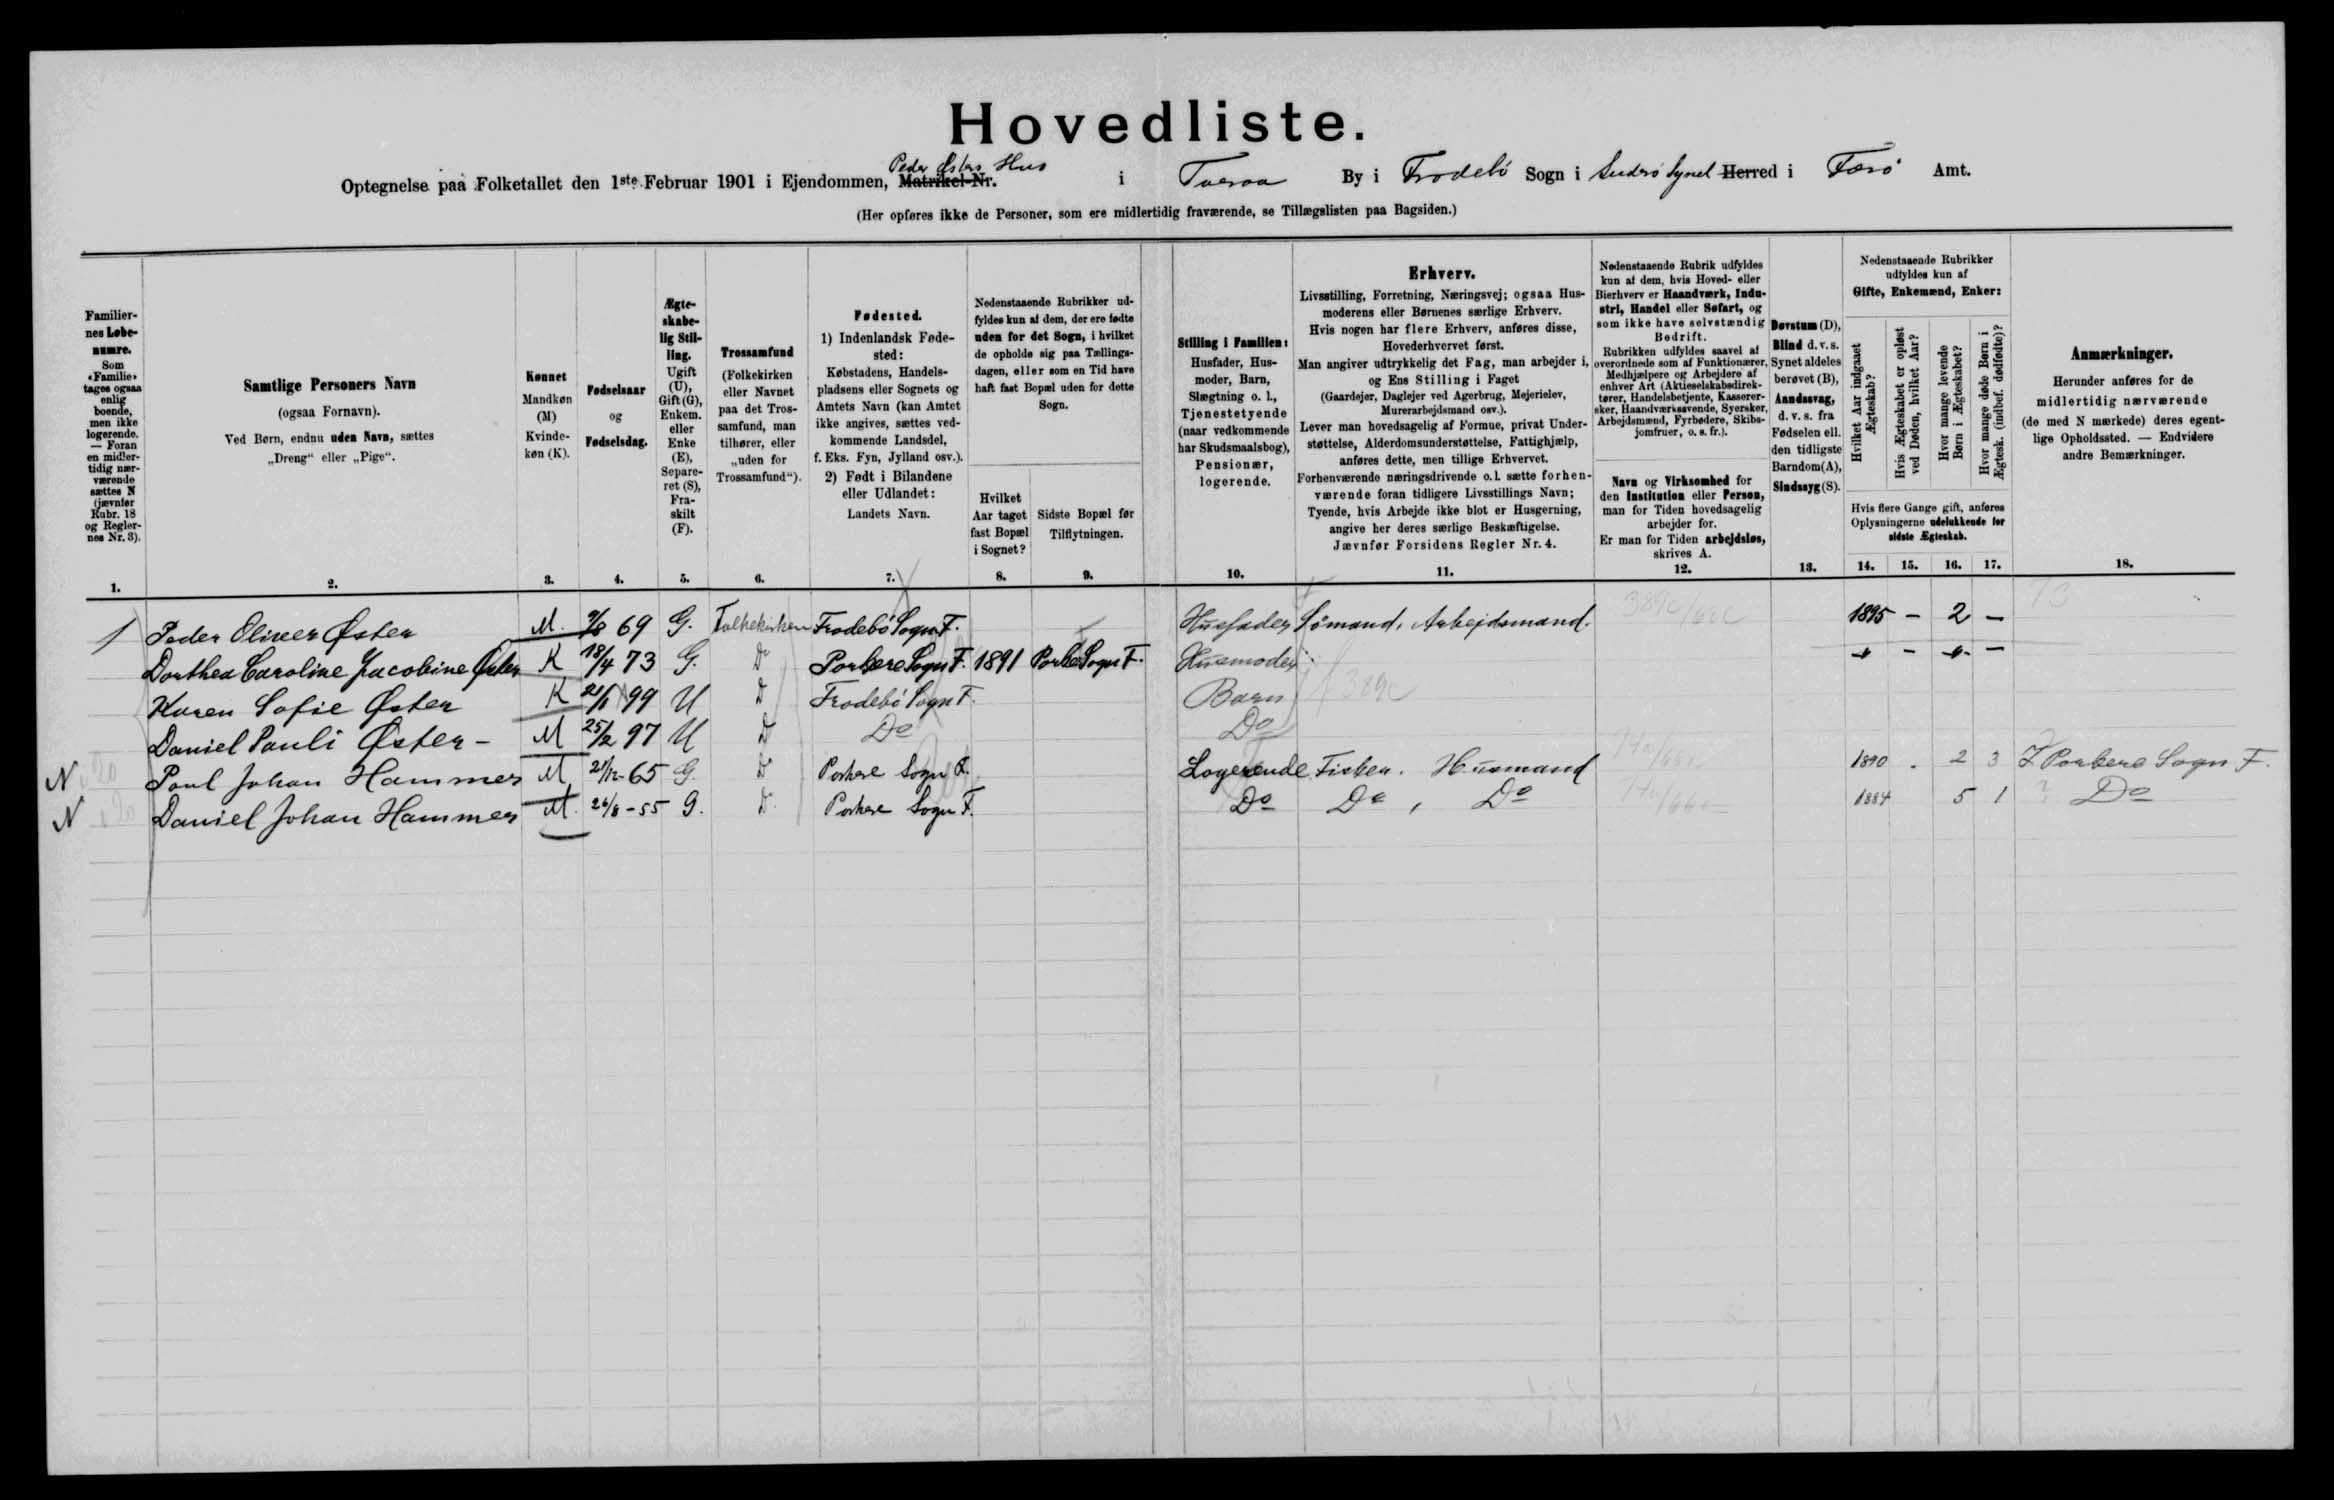 Hovedliste.
Optegnelse paa Folketallet den 1ste Februar 1901 i Ejendommen, Matrikel-Nr. Peder Østers Hus i Tveraa By i Frodebö Sogn i Suderö Syssel Herred i Færö Amt.
(Her opføres ikke de Personer, som ere midlertidig fraværende, se Tillægslisten paa Bagsiden.)
Familiernes Løbenumre.
Som «Familie» tages ogsaa enlig boende, men ikke logerende. — Foran en midlertidig nærværende sættes N (jævnfør Rubr. 18 og Reglernes Nr. 3).
1.
Samtlige Personers Navn
(ogsaa Fornavn).
Ved Børn, endnu uden Navn, sættes
„Dreng“ eller „Pige“.
2.
Kønnet
Mandkøn (M)
Kvindekøn (K).
3.
Fødselsaar
og
Fødselsdag.
4.
Ægteskabelig Stilling.
Ugift (U), Gift (G), Enkem. eller Enke (E), Separeret (S), Fraskilt (F).
5.
Trossamfund
(Folkekirken eller Navnet paa det Trossamfund, man tilhører, eller „uden for Trossamfund“).
6.
Fødested.
1) Indenlandsk Fødested:
Købstadens, Handelspladsens eller Sognets og Amtets Navn (kan Amtet ikke angives, sættes vedkommende Landsdel, f. Eks. Fyn, Jylland osv.).
2) Født i Bilandene eller Udlandet:
Landets Navn.
7.
Nedenstaaende Rubrikker udfyldes kun af dem, der ere fødte uden for det Sogn, i hvilket de opholde sig paa Tællingsdagen, eller som en Tid have haft fast Bopæl uden for dette Sogn.
Hvilket Aar taget fast Bopæl i Sognet?
8.
Sidste Bopæl før Tilflytningen.
9.
Stilling i Familien:
Husfader, Husmoder, Barn, Slægtning o. l., Tjenestetyende (naar vedkommende har Skudsmaalsbog), Pensionær, logerende.
10.
Erhverv.
Livsstilling, Forretning, Næringsvej; ogsaa Husmoderens eller Børnenes særlige Erhverv.
Hvis nogen har flere Erhverv, anføres disse, Hovederhvervet først.
Man angiver udtrykkelig det Fag, man arbejder i, og Ens Stilling i Faget
(Gaardejer, Daglejer ved Agerbrug, Mejerielev, Murerarbejdsmand osv.).
Lever man hovedsagelig af Formue, privat Understøttelse, Alderdomsunderstøttelse, Fattighjælp, anføres dette, men tillige Erhvervet.
Forhenværende næringsdrivende o. l. sætte forhenværende foran tidligere Livsstillings Navn; Tyende, hvis Arbejde ikke blot er Husgerning, angive her deres særlige Beskæftigelse.
Jævnfør Forsidens Regler Nr. 4.
11.
Nedenstaaende Rubrik udfyldes kun af dem, hvis Hoved- eller Bierhverv er Haandværk, Industri, Handel eller Søfart, og som ikke have selvstændig Bedrift.
Rubrikken udfyldes saavel af overordnede som af Funktionærer, Medhjælpere og Arbejdere af enhver Art (Aktieselskabsdirektører, Handelsbetjente, Kasserersker, Haandværkssvende, Syersker, Arbejdsmænd, Fyrbødere, Skibsjomfruer, o. s. fr.).
Navn og Virksomhed for den Institution eller Person, man for Tiden hovedsagelig arbejder for.
Er man for Tiden arbejdsløs, skrives A.
12.
Døvstum (D), Blind d. v. s. Synet aldeles berøvet (B), Aandssvag, d. v. s. fra Fødselen ell. den tidligste Barndom (A), Sindssyg (S).
13.
Nedenstaaende Rubrikker udfyldes kun af
Gifte, Enkemænd, Enker:
Hvilket Aar indgaaet Ægteskab?
Hvis Ægteskabet er opløst ved Døden, hvilket Aar?
Hvor mange levende Børn i Ægteskabet?
Hvor mange døde Børn i Ægtesk. (indbef. dødfødte)?
Hvis flere Gange gift, anføres Oplysningerne udelukkende for sidste Ægteskab.
14. 15. 16. 17.
Anmærkninger.
Herunder anføres for de midlertidig nærværende (de med N mærkede) deres egentlige Opholdssted. — Endvidere andre Bemærkninger.
18.
1 Peder Oliver Øster M. 69 G. Folkekirken Frodebö Sogn F. Husfader Sömand, Arbejdsmand. 389c 1895 — 2 — 73
Dorthea Caroline Jacobine Øster K 18/4 73 G. Do Porkere Sogn F. 1891 Porkere Sogn F. Husmoder
Karen Sofie Øster K 21/1 99 U Do Frodebö Sogn F. Barn 389c
Daniel Pauli Øster - M 25/2 97 U Do Do Do
N Poul Johan Hammer M 21/12-65 G. Do Porkere Sogn F. Logerende Fisker. Husmand 1890 . 2 3 Porkere Sogn F.
N Daniel Johan Hammer M. 26/8-55 G. Do Porkere Sogn F. Do Do, Do 1884 5 1 Do